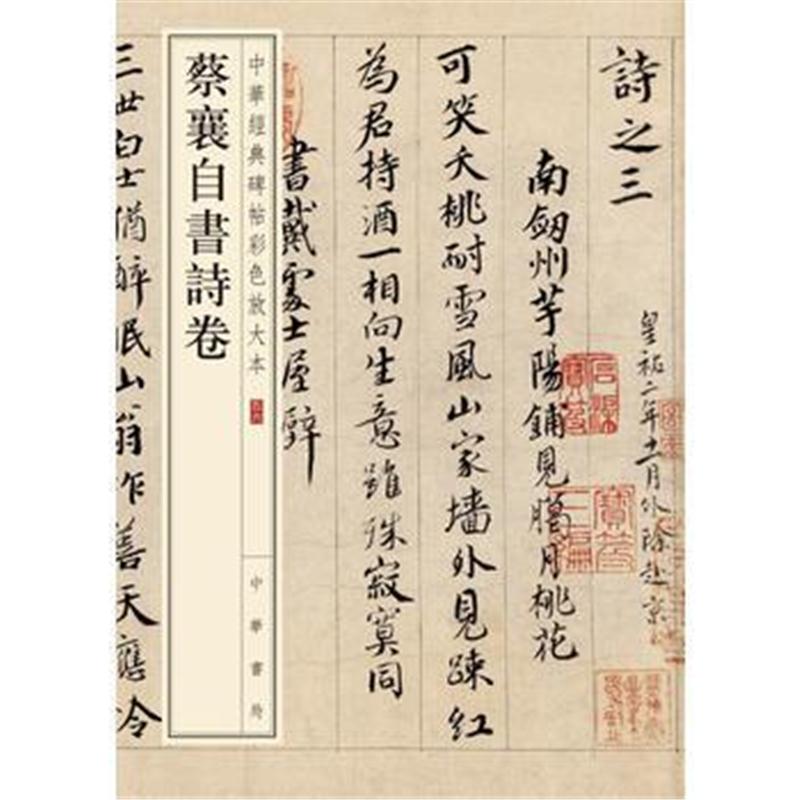 詩之三
皇祐二年十一月外除赴京
南劔州芋陽鋪見臘月桃花
可笑夭桃耐雪風山家墙外見踈紅
為君持酒一相向生意雖殊寂寞同
書戴處士屋壁
中華經典碑帖彩色放大本
中華書局
蔡襄自書詩卷
三世白士猶醉眠山翁作善天應冷